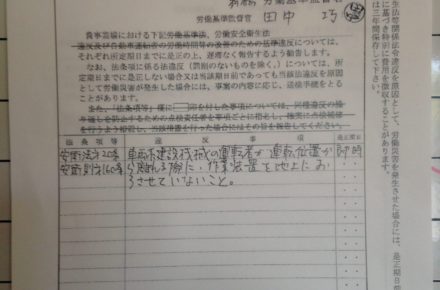 労働基準監督官 田中 巧
貴事業場における下記労働基準法、労働安全衛生法
違反及び自動車運転者の労働時間等の改善のための基準違反については、
それぞれ所定期日までに是正の上、遅滞なく報告するよう勧告します。
なお、法条項に係る法違反（罰則のないものを除く。）については、所
定期日までに是正しない場合又は当該期日前であっても当該法違反を原因
として労働災害が発生した場合には、事案の内容に応じ、送検手続をとる
ことがあります。
また、「法条項等」欄に□印を付した事項については、同種違反の繰
り返しを防止するための点検責任者を事項ごとに指名し、確実に点検補修
を行うよう措置し、当該措置を行った場合にはその旨を報告してください。
法条項等 違反事項 是正期日
安衛法第20条 車両系建設機械の運転者が運転位置か 即時
安衛則第160条 ら離れる際に、作業装置を地上におろ
させていないこと。
生法等関係法令違反を原因として、労働災害を発生させた場合には、
に基づき特別に費用を徴収することがあります。
は三年間保存して下さい。
是正期日